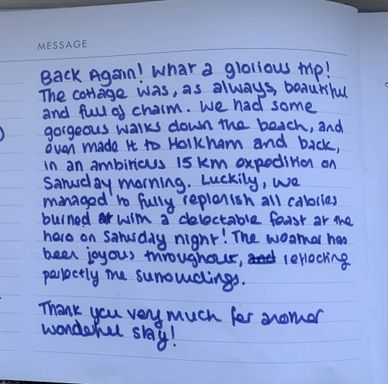 MESSAGE
Back Again! What a glorious trip!
The cottage was, as always, beautiful
and full of charm. We had some
gorgeous walks down the beach, and
even made it to Holkham and back,
in an ambitious 15 km expedition on
Saturday morning. Luckily, we
managed to fully replenish all calories
burned with a delectable feast at the
hero on Saturday night! The weather has
been joyous throughout, and reflecting
perfectly the surroundings.
Thank you very much for another
wonderful stay!